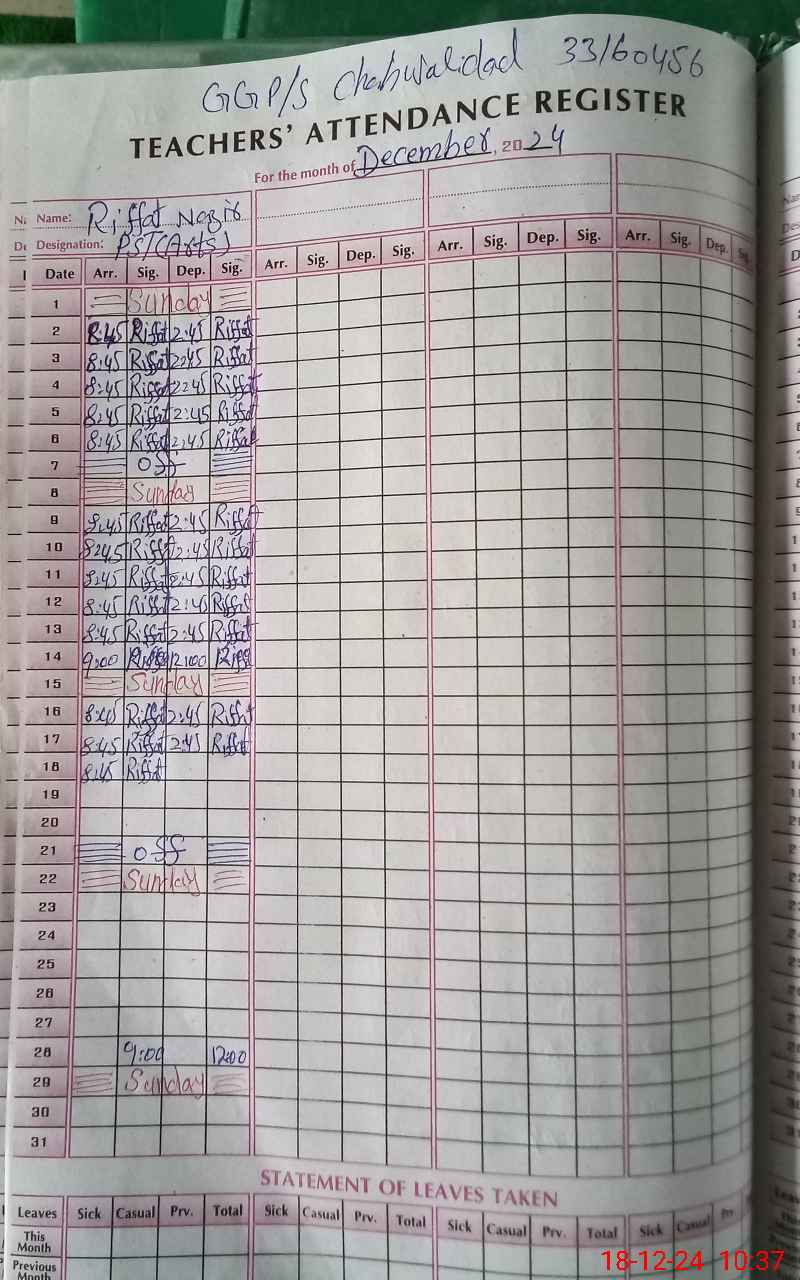 GGP/S Chahwalidad 33/60456
TEACHERS' ATTENDANCE REGISTER
For the month of December, 2024
Name: Riffat Nazir
Designation: PST(Arts)
Date Arr. Sig. Dep. Sig. Arr. Sig. Dep. Sig. Arr. Sig. Dep. Sig. Arr. Sig. Dep.
1 Sunday
2 8:45 Riffat 2:45 Riffat
3 8:45 Riffat 2:45 Riffat
4 8:45 Riffat 2:45 Riffat
5 8:45 Riffat 2:45 Riffat
6 8:45 Riffat 2:45 Riffat
7 off
8 Sunday
9 8:45 Riffat 2:45 Riffat
10 8:45 Riffat 2:45 Riffat
11 8:45 Riffat 2:45 Riffat
12 8:45 Riffat 2:45 Riffat
13 8:45 Riffat 2:45 Riffat
14 9:00 Riffat 12:00 Riffat
15 Sunday
16 8:45 Riffat 2:45 Riffat
17 8:45 Riffat 2:45 Riffat
18 8:45 Riffat
19
20
21 off
22 Sunday
23
24
25
26
27
28 9:00 12:00
29 Sunday
30
31
STATEMENT OF LEAVES TAKEN
Leaves Sick Casual Prv. Total Sick Casual Prv. Total Sick Casual Prv. Total Sick Casual Prv.
This Month
Previous Month
18-12-24 10:37